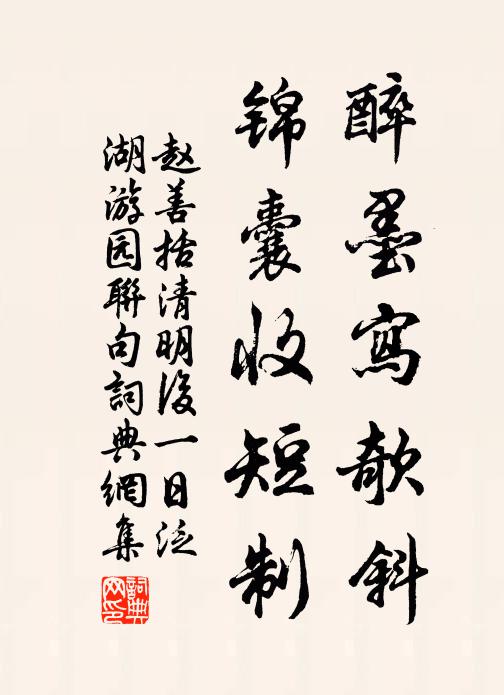 醉墨寫欹斜
錦囊收短制
赵善括清明後一日泛
湖游园聯句詞典網集
詞典网印